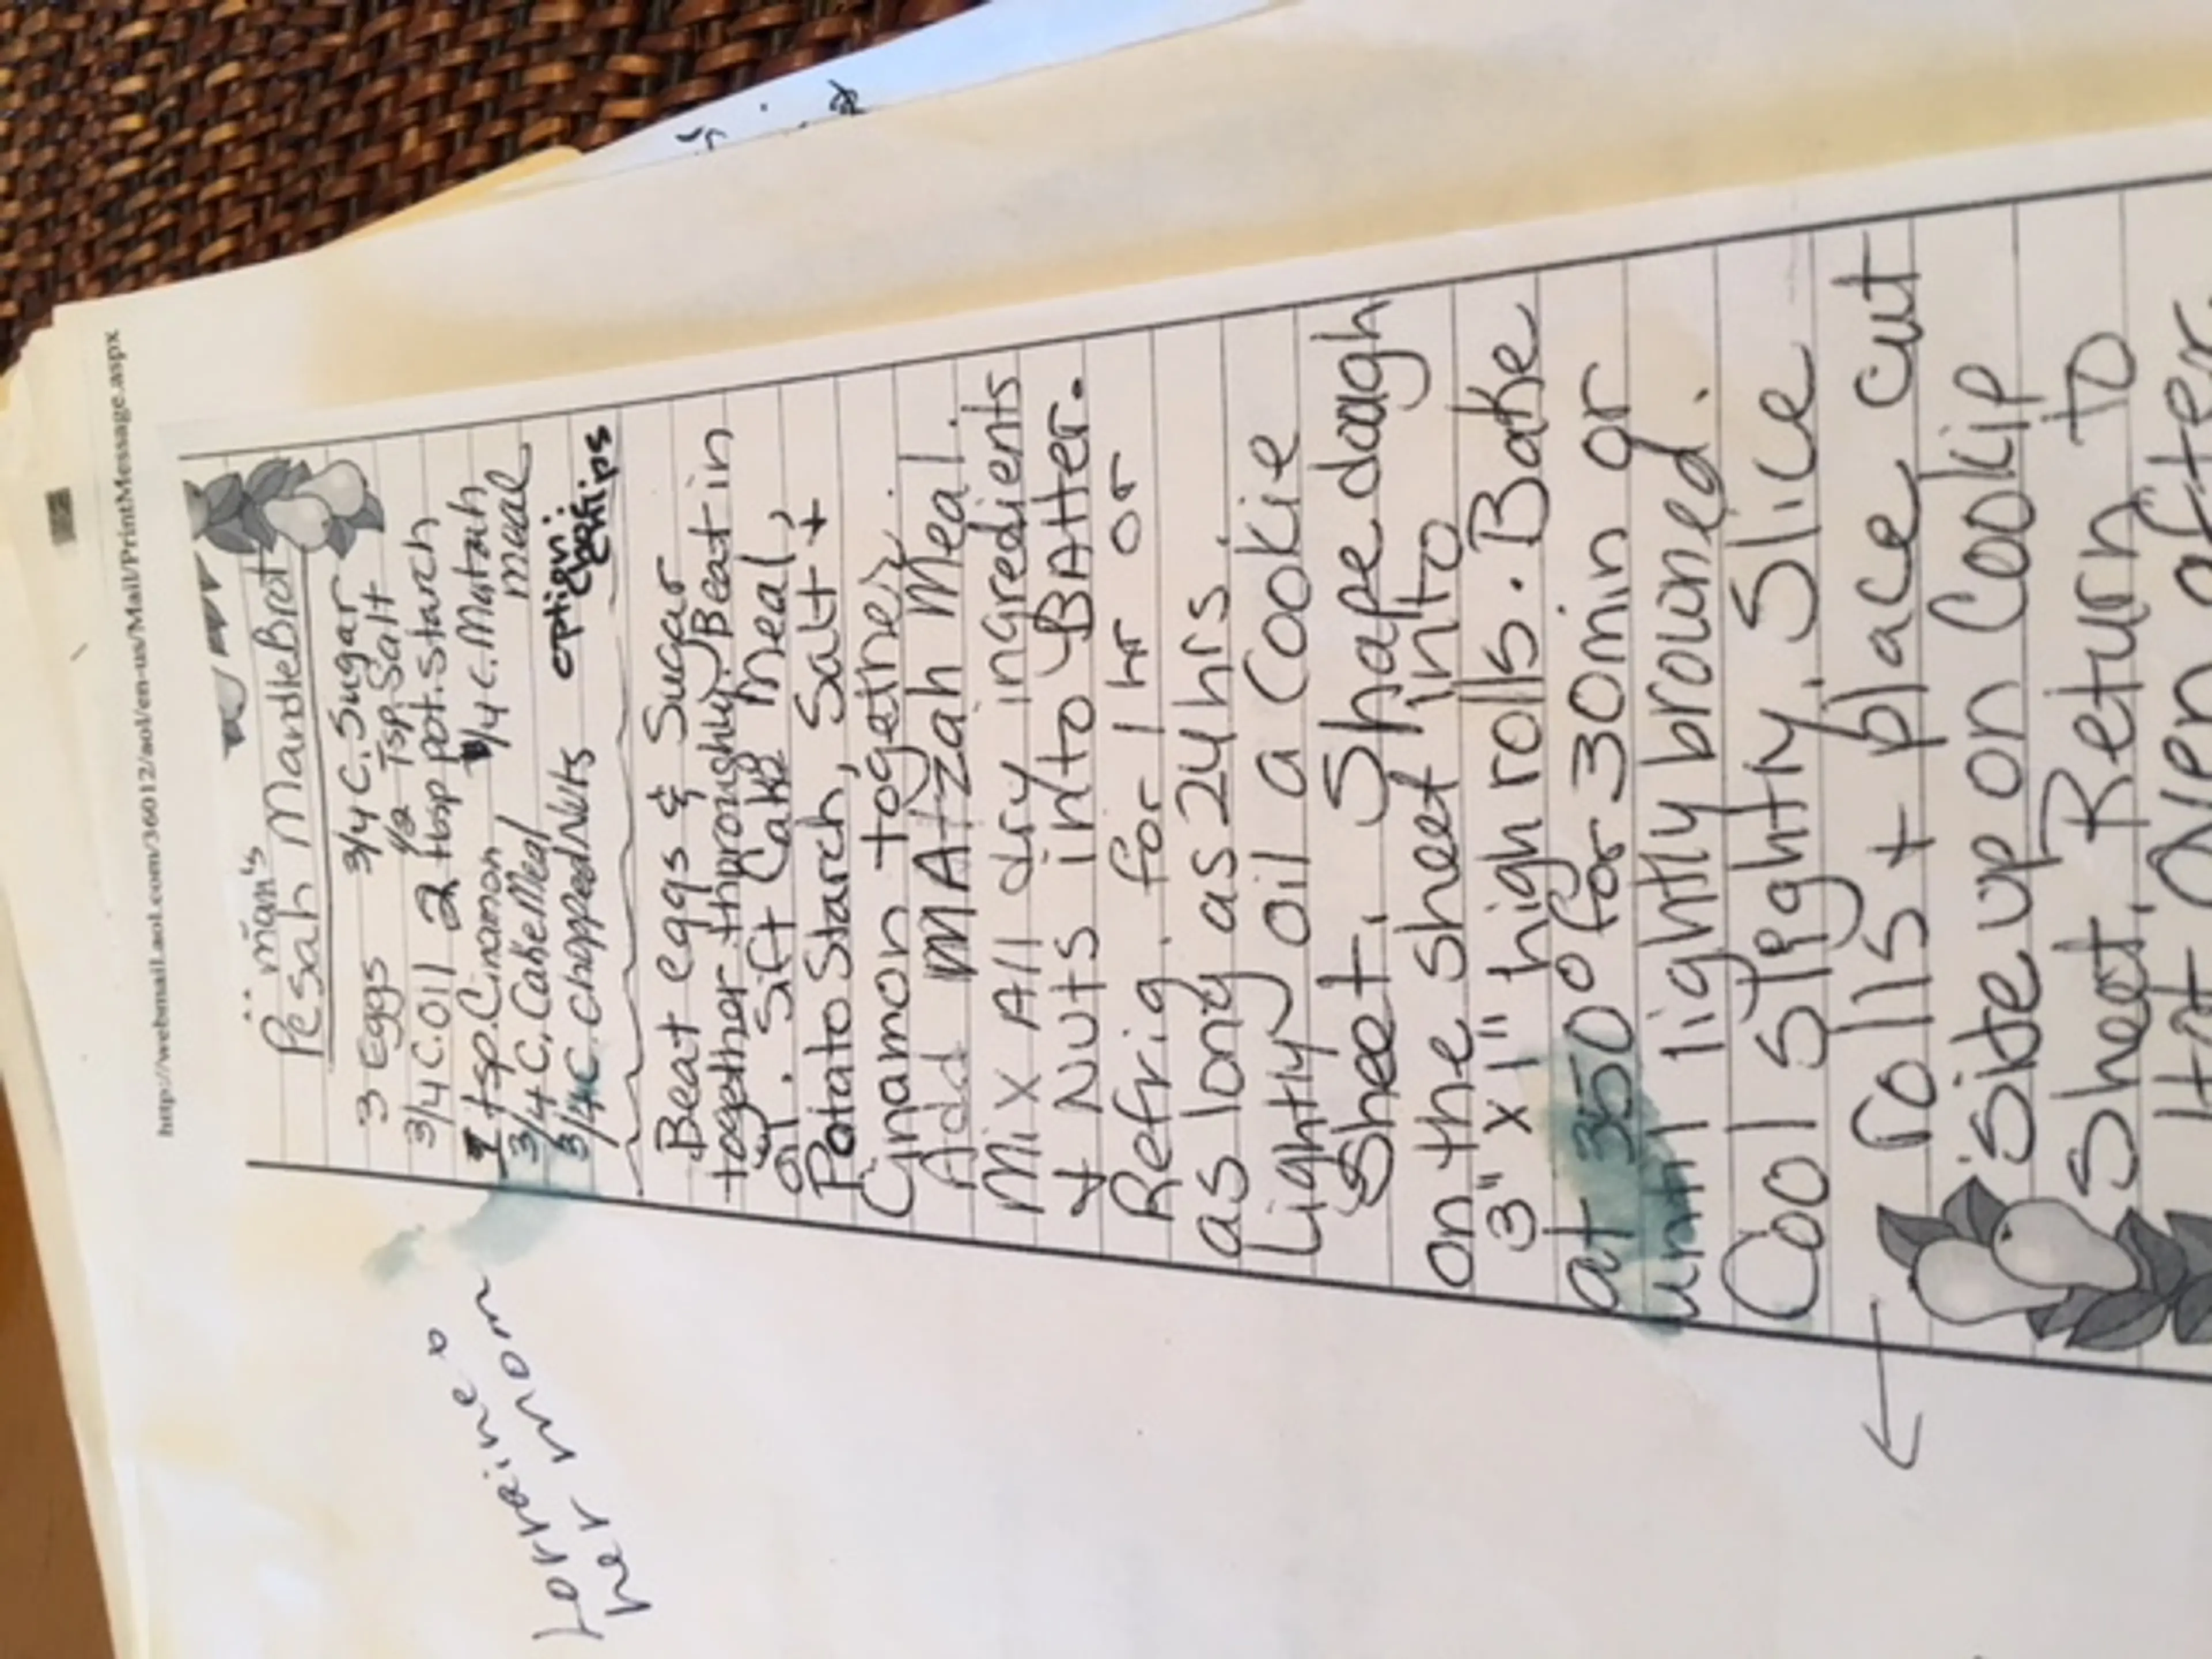 http://webmail.aol.com/36012/aol/en-us/Mail/PrintMessage.aspx
man's
Pesah MandleBrot
3 Eggs 3/4 C. Sugar
3/4 C. Oil 1/2 Tsp. Salt
1 tsp. Cinamon 2 tbsp pot. Starch
3/4 C. Cake Meal 1/4 c. Matzah
meal
3/4 C. Chopped Nuts option:
chips
Beat eggs & Sugar
together thproughly. Beat in
oil. Sift Cake Meal,
Potato Starch, Salt +
Cinamon together.
Add MAtzah Meal.
Mix All dry ingredients
+ Nuts into BAtter.
Refrig. for 1 hr or
as long as 24 hrs.
Lightly oil a Cookie
Sheet. Shape dough
on the sheet into
3" x 1" high rolls. Bake
at 350° for 30 min or
until lightly browned.
Cool slightly. Slice
rolls + place cut
side up on Cookie
Sheet. Return to
Hot Oven after
Lorraine &
her mom